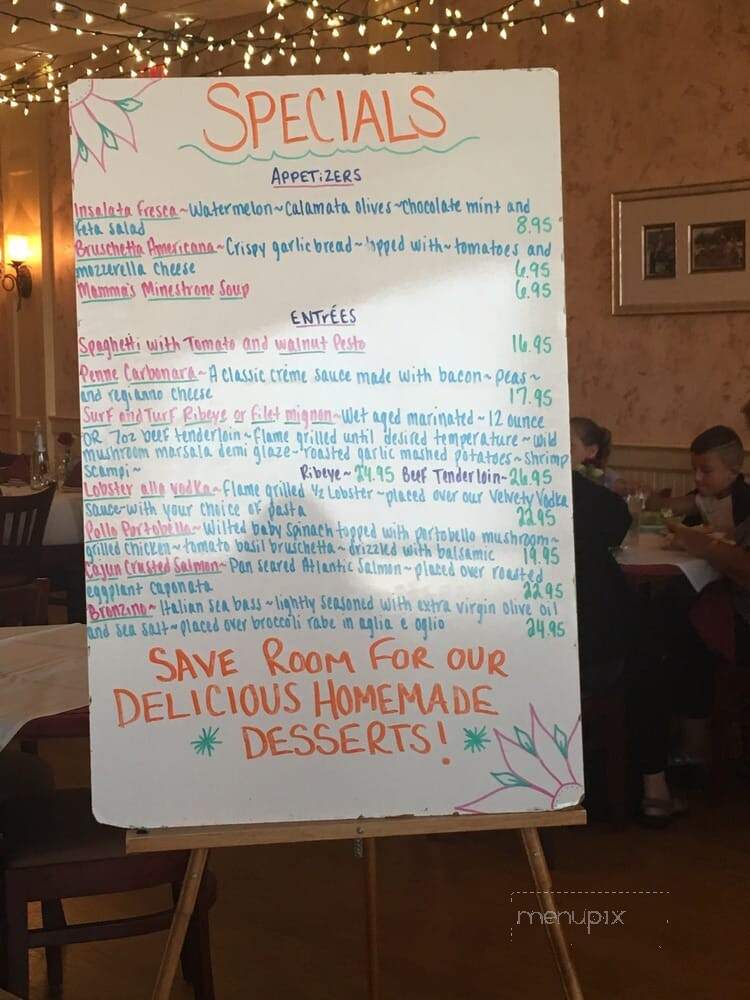 SPECIALS
APPETiZERS
Insalata Fresca~Watermelon~Calamata olives~Chocolate mint and
feta salad 8.95
Bruschetta Americana~Crispy garlic bread~topped with~tomatoes and
mozzerella cheese 6.95
Mamma's Minestrone Soup 6.95
ENTrÉES
Spaghetti with Tomato and walnut Pesto 16.95
Penne Carbonara~A classic créme sauce made with bacon~peas~
and regianno cheese 17.95
Surf and Turf Ribeye or Filet mignon~Wet aged marinated~12 ounce
OR 7oz beef tenderloin~Flame grilled until desired temperature~wild
mushroom marsala demi glaze~roasted garlic mashed potatoes~shrimp
scampi~ Ribeye~24.95 Beef Tenderloin~26.95
Lobster alla vodka~Flame grilled ½ Lobster~placed over our Velvety Vodka
sauce~with your choice of pasta 22.95
Pollo Portobello~Wilted baby spinach topped with portobello mushroom~
grilled chicken~tomato basil bruschetta~drizzled with balsamic 19.95
Cajun Crusted Salmon~Pan seared Atlantic Salmon~placed over roasted
eggplant Caponata 22.95
Bronzino~Italian sea bass~lightly seasoned with extra virgin olive oil
and sea salt~placed over broccoli rabe in aglia e oglio 24.95
SAVE ROOM FOR OUR
DELICIOUS HOMEMADE
DESSERTS!
menupix